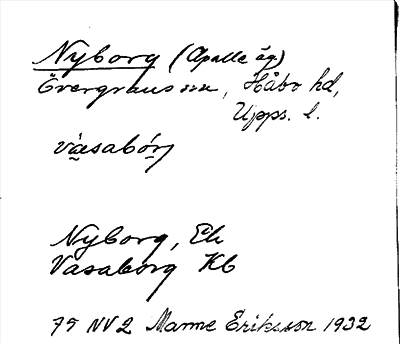 Nyborg (Apalle äg.)
Övergrans sn, Håbo hd,
Upps. l.
väsabórj
Nyborg, Ek
Vasaborg Kb
75 NV2 Manne Eriksson 1932